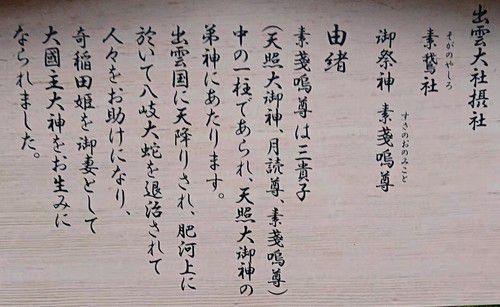 出雲大社摂社
そがのやしろ
素鵞社
すさのおのみこと
御祭神 素戔嗚尊
由緒
素戔嗚尊は三貴子
(天照大御神、月読尊、素戔嗚尊)
中の一柱であられ、天照大御神の
弟神にあたります。
出雲国に天降りされ、肥河上に
於いて八岐大蛇を退治されて
人々をお助けになり、
奇稲田姫を御妻として
大國主大神をお生みに
なられました。